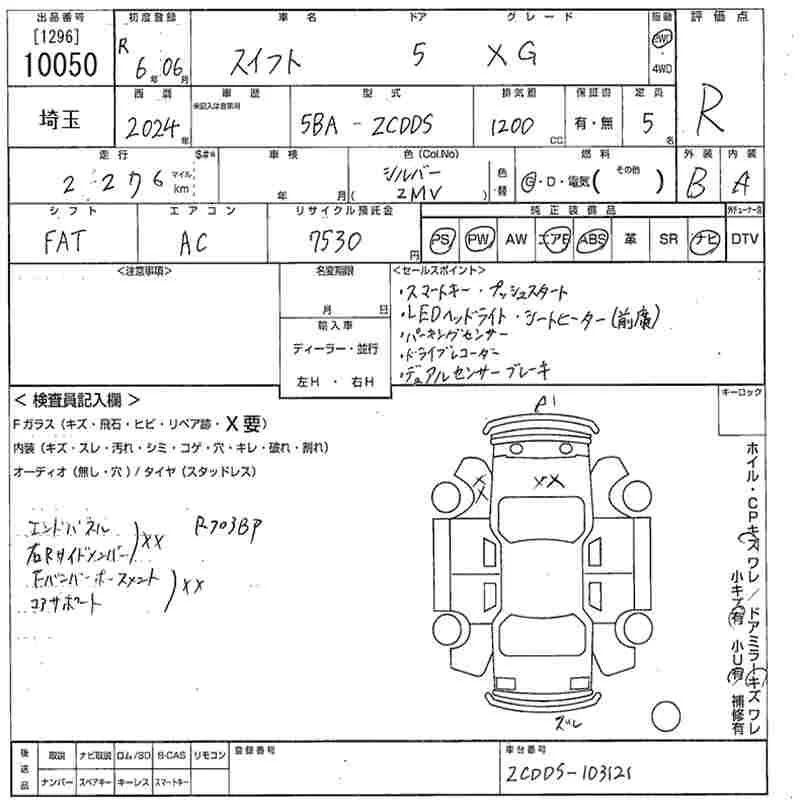 出品番号 初度登録 車名 ドア グレード 駆動 評価点
[1296]
10050 R 6年 06月 スイフト 5 XG 2WD ・ 4WD
埼玉 西暦 車歴 型式 排気量 保証書 定員 R
未記入は自家用
2024年 5BA-ZCDDS 1200 CC 有・無 5名
走行 $#* 車検 色(Col.No) 燃料 外装 内装
2 276 マイル km 年 月 シルバー (ZMV) 色替 G・D・電気( その他 ) B A
シフト エアコン リサイクル預託金 純正装備品 外チューナー含
FAT AC 7530円 PS PW AW エアB ABS 革 SR ナビ DTV
<注意事項> 名変期限 <セールスポイント>
月 日
輸入車
ディーラー・並行
左H ・ 右H
・スマートキー・プッシュスタート
・LEDヘッドライト・シートヒーター(前席)
・パーキングセンサー
・ドライブレコーダー
・デュアルセンサーブレーキ
<検査員記入欄> キーロック
Fガラス(キズ・飛石・ヒビ・リペア跡・X要)
内装(キズ・スレ・汚れ・シミ・コゲ・穴・キレ・破れ・割れ)
オーディオ(無し・穴)/タイヤ(スタッドレス)
エンドパネル
右Rサイドメンバー)XX
Fバンパーホースメント
コアサポート)XX
A1
XX
XX
ズレ
ホイル・CPキズ ワレ / ドアミラーキズ ワレ
小キズ有 小U有 補修有
後送品 取説 ナビ取説 ロム/SD B-CAS リモコン 登録番号 車台番号
ナンバー スペアキー キーレス スマートキー ZCDDS-103121